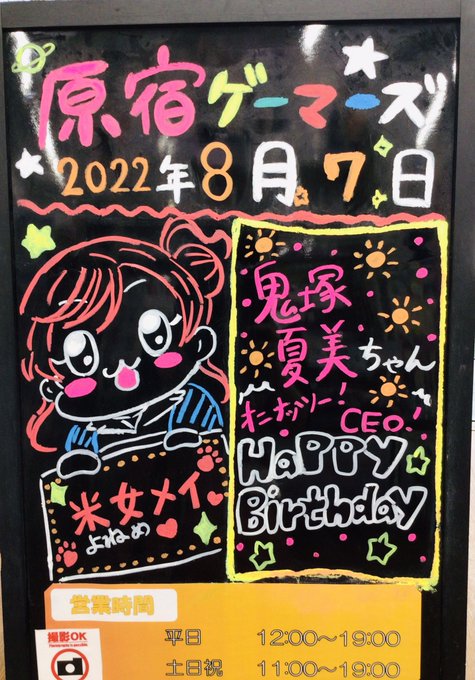 原宿ゲーマーズ
2022年8月7日
鬼塚
夏美ちゃん
オニナッツー！
CEO！
Happy
Birthday
米女メイ
よねめ
営業時間
撮影OK
平日 12:00～19:00
土日祝 11:00～19:00